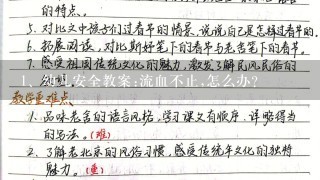 的特点。
5. 对比文中孩子们过春节的情景,说说自己是怎样过春节的。
6. 拓展阅读,对比斯好笔下的春节与老舍笔下的春节。
7. 感受祖国传统文化的魅力,激发了解民风民俗的
1、幼儿安全教案:流血不止,怎么办?
教学重难点
1. 品味老舍的语言风格,学习课文有顺序、详略得当
的写法。(难)
2. 了解老北京的风俗习惯,感受传统年文化的独特
魅力。(重)